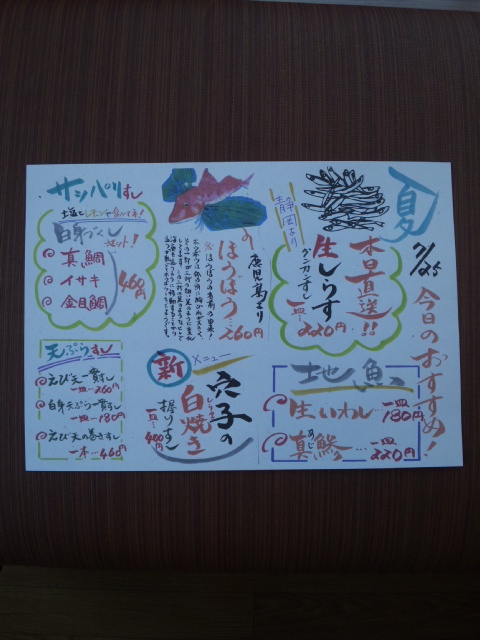 夏
7/25
今日のおすすめ!
静岡より
本日直送!!
生しらす
グンカンすし
一皿…220円
地魚
生いわし…一皿180円
真鯵…一皿220円
あじ
鹿児島より
ほうぼう…260円
新
メニュー
穴子の
白焼き
握りすし
一皿…480円
サッパリすし
白身づくし
セット!
真鯛
イサキ
金目鯛
460円
天ぷらすし
えび天一貫すし
一皿…260円
白身天ぷら一貫すし
一皿…180円
えび天の巻きすし
一本…460円